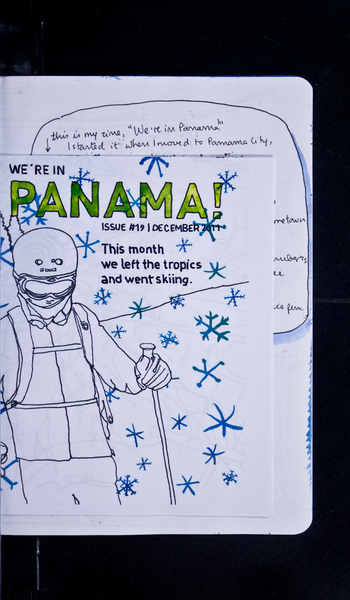 this is my zine, "We're in Panama"
I started it when I moved to Panama City,
WE'RE IN
PANAMA!
ISSUE #19 | DECEMBER 2011
This month
we left the tropics
and went skiing.